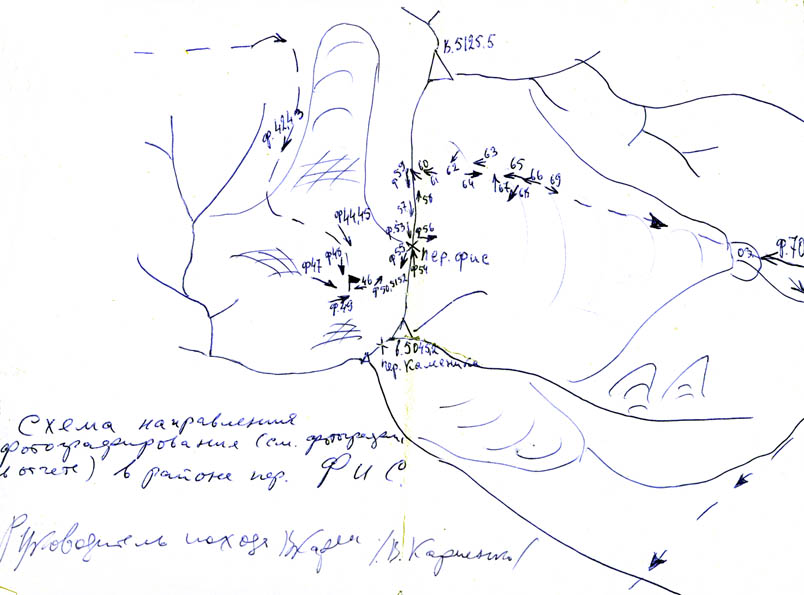 в.5125.5
ф.42,43
ф 59
60
61
62
63
64
65
66
67
68
69
57
58
ф44,45
ф.53
ф56
ф45
ф55
пер. фис
оз.
ф.70
ф47
46
ф50,51,52
ф54
ф.49
в.5045,2
пер. Каменика
Схема направления
фотографирования (см. фотографии
в отчете) в районе пер. ФИС.
Руководитель похода /В. Карпенко/